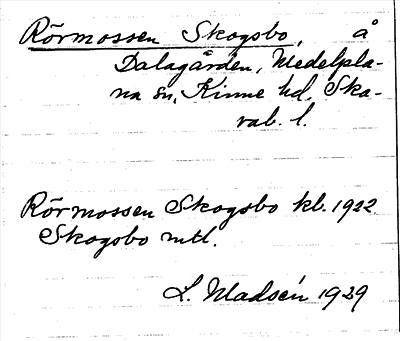 Rörmossen Skogsbo, å
Dalagården, Medelpla-
na sn, Kinne hd, Ska-
rab. l.
Rörmossen Skogsbo kl. 1922
Skogsbo mtl.
L. Madsén 1929